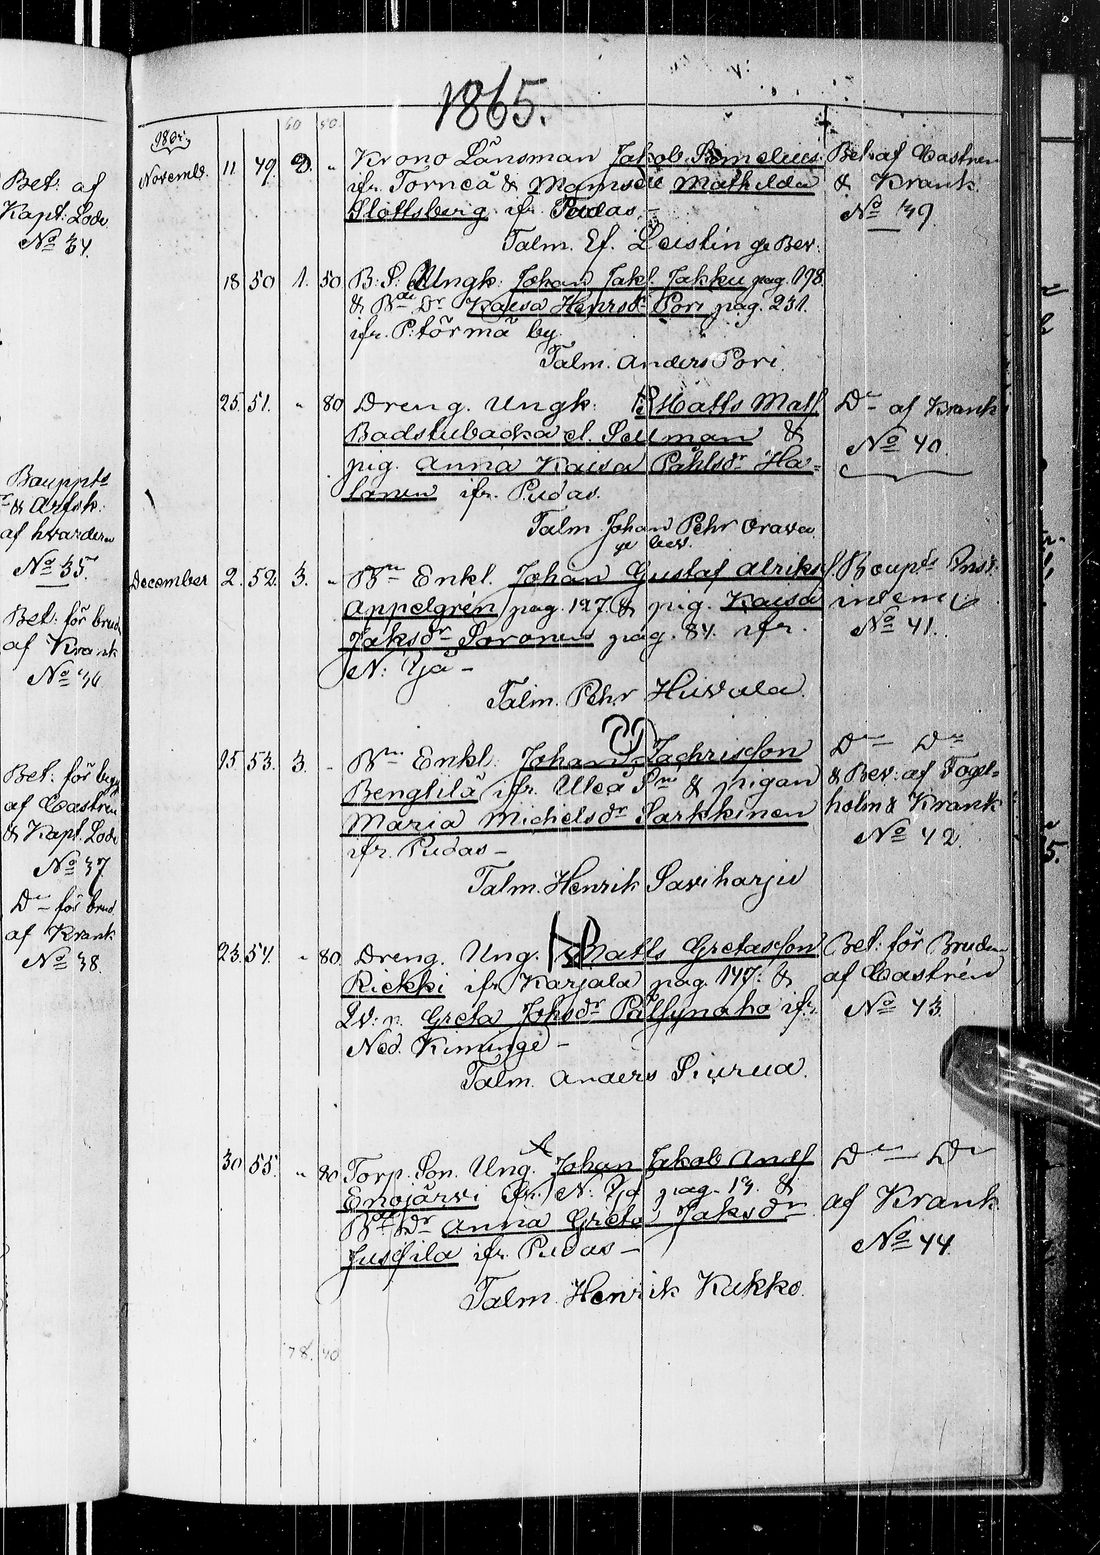 Bet: af
Kapt: Lode
No 34
Bouppts
& Arfsk.
af hvardera
No 35.
Bet: för brud
af Krank
No 36
Bet: för
af Castren
& Kapt. Lode
No 37
Do för brud
af Krank
No 38.
1865.
60 50.
1865.
Novemb. 11 49. 2. " Krono Länsman Jakob
ifr. Torneå & Mamsell Mathilda
Slottsberg ifr. Pudas. –
Talm. Ef. Lustin ge Bev.
Bet: af Castren
& Krank
No 39
18 50 1. 50 B. S. Ungk: Johan Jakl. Jakku pag. 198
& Bde Dr Kaisa Henrsdr Pori pag. 231.
ifr. P: törmä by.
Talm. Anders Pori.
25. 51. " 80 Dreng. Ungk: Matts Mats
Badstubacka el. Sellman &
pig. Anna Kaisa Påhlsdr Ha-
lonen ifr. Pudas.
Talm Johan Pehr Orava
ge bev.
Do af Krank
No 40.
December 2. 52. 3. " Bn Enkl. Johan Gustaf Alriks
Appelgrén pag. 127. & pig. Kaisa
Jaksdr Soronen pag. 84. ifr.
N: Ijå –
Talm. Pehr Huvala.
Boupts Inst.
No 41.
15 53. 3. " Bn Enkl. Johan Zachrisson
Bengtilä ifr. Uleå Sn & pigan
Maria Michelsdr Sarkkinen
ifr. Pudas –
Talm. Henrik Saviharju
Do Do
& Bev: af Fogel-
holm & Krank
No 42.
23. 54. " 80. Dreng. Ung. Matts Gretasson
Riekki ifr Karjala pag. 147. &
Greta Joksdr ifr
Ned. Kiminge –
Talm. Anders Siurua.
Bet: för Bruden
af Castrén
No 43.
30 55. " 80 Torp. Son. Ung. Johan Jakob Ands
Emojärvi ifr. N: Ijå pag. 19. &
Bde Dr Anna Greta Jaksdr
Jussila ifr. Pudas –
Talm. Henrik Kukko.
Do Do
af Krank
No 44.
78. 40